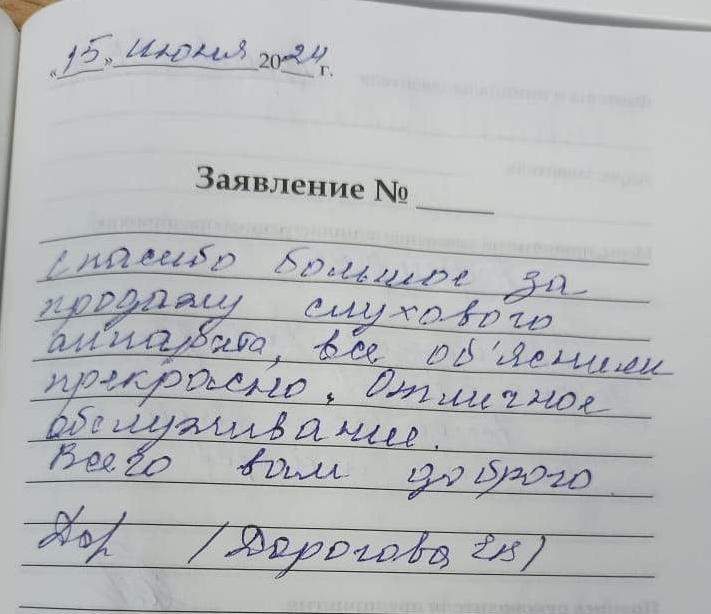 «15» июня 2024 г.
Заявление № ____
Спасибо большое за
продажу слухового
аппарата, все об'яснили
прекрасно. Отличное
обслуживание.
Всего вам доброго
Дор /Дорогова